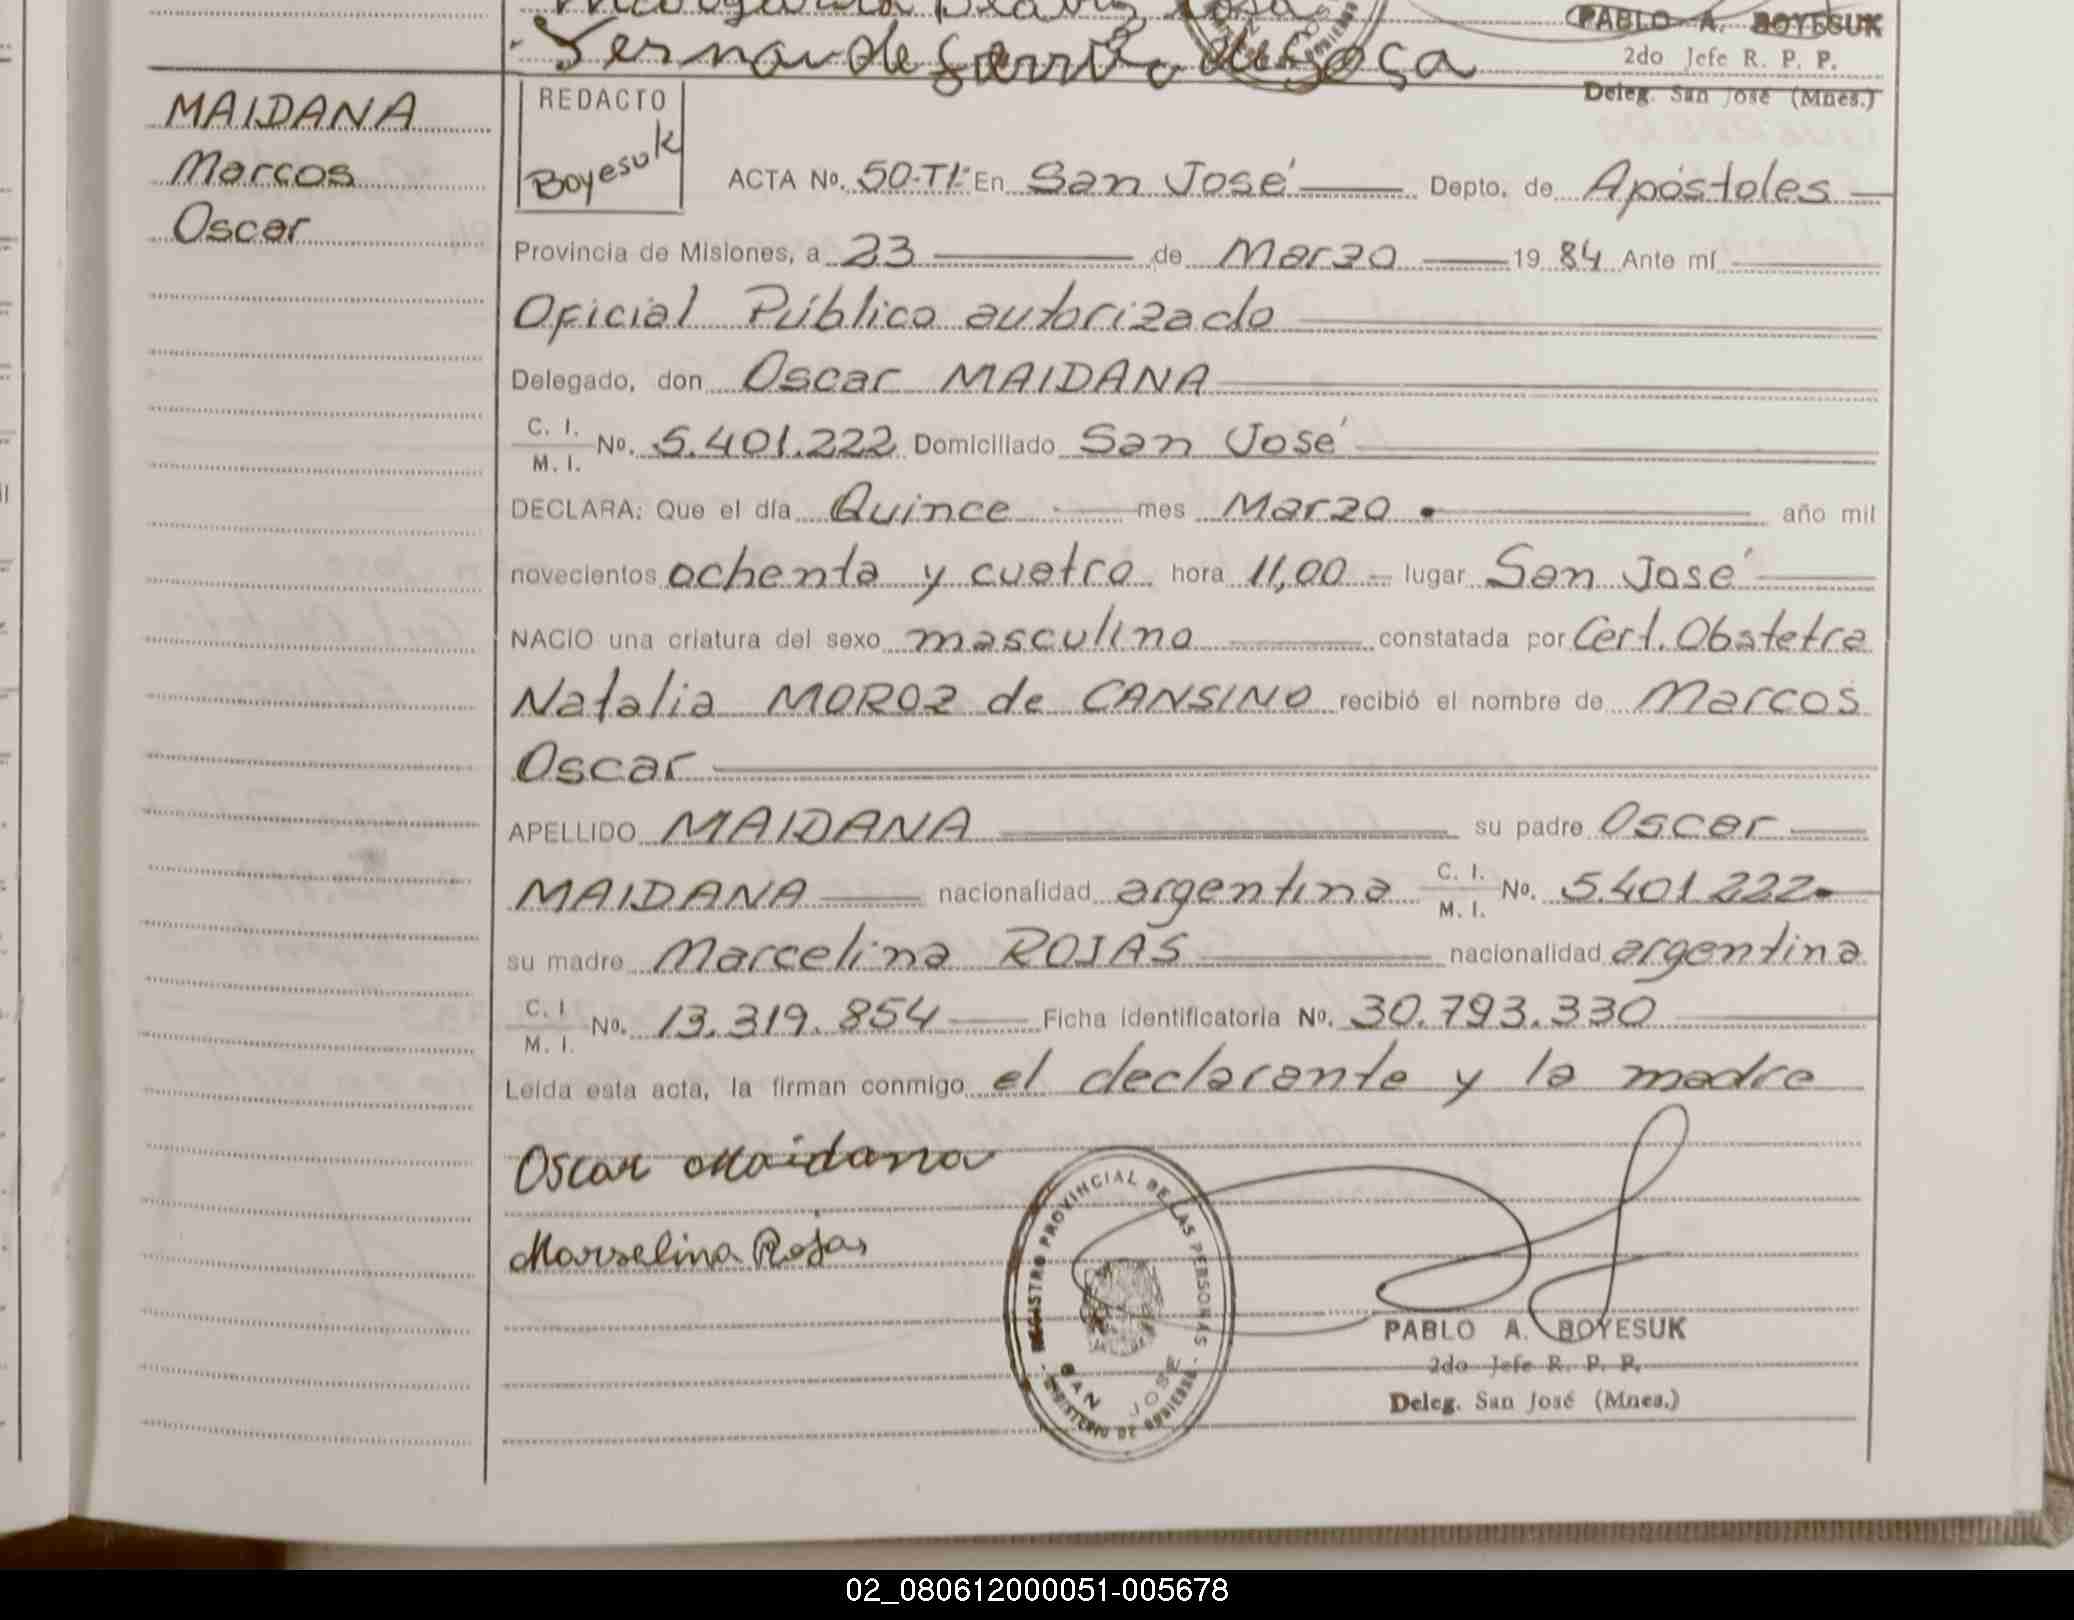 Fernande Sarriá de Sosa
PABLO A. BOYESUK
2do Jefe R. P. P.
Deleg. San José (Mnes.)
MAIDANA
Marcos
Oscar
REDACTO
Boyesuk
ACTA No. 50-TI: En San José Depto. de Apóstoles
Provincia de Misiones, a 23 de Marzo 19 84 Ante mí
Oficial Público autorizado
Delegado, don Oscar MAIDANA
C. I. M. I. No. 5.401.222 Domiciliado San José
DECLARA: Que el día Quince mes Marzo año mil
novecientos ochenta y cuatro hora 11,00 lugar San José
NACIO una criatura del sexo masculino constatada por Cert. Obstetra
Natalia MOROZ de CANSINO recibió el nombre de Marcos
Oscar
APELLIDO MAIDANA su padre Oscar
MAIDANA nacionalidad argentina C. I. M. I. No. 5.401.222
su madre Marcelina ROJAS nacionalidad argentina
C. I M. I. No. 13.319.854 Ficha identificatoria No. 30.793.330
Leída esta acta, la firman conmigo el declarante y la madre
Oscar Maidana
Marselina Rojas
REGISTRO PROVINCIAL DE LAS PERSONAS
SAN JOSE
MINISTERIO DE GOBIERNO
PABLO A. BOYESUK
2do Jefe R. P. P.
Deleg. San José (Mnes.)
02_080612000051-005678